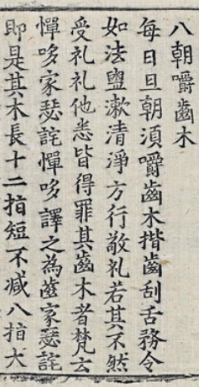 八朝嚼齒木
每日旦朝須嚼齒木揩齒刮舌務令
如法盥漱清淨方行敬礼若其不然
受礼礼他悉皆得罪其齒木者梵云
憚哆家瑟詫憚哆譯之為齒家瑟詫
即是其木長十二指短不減八指大